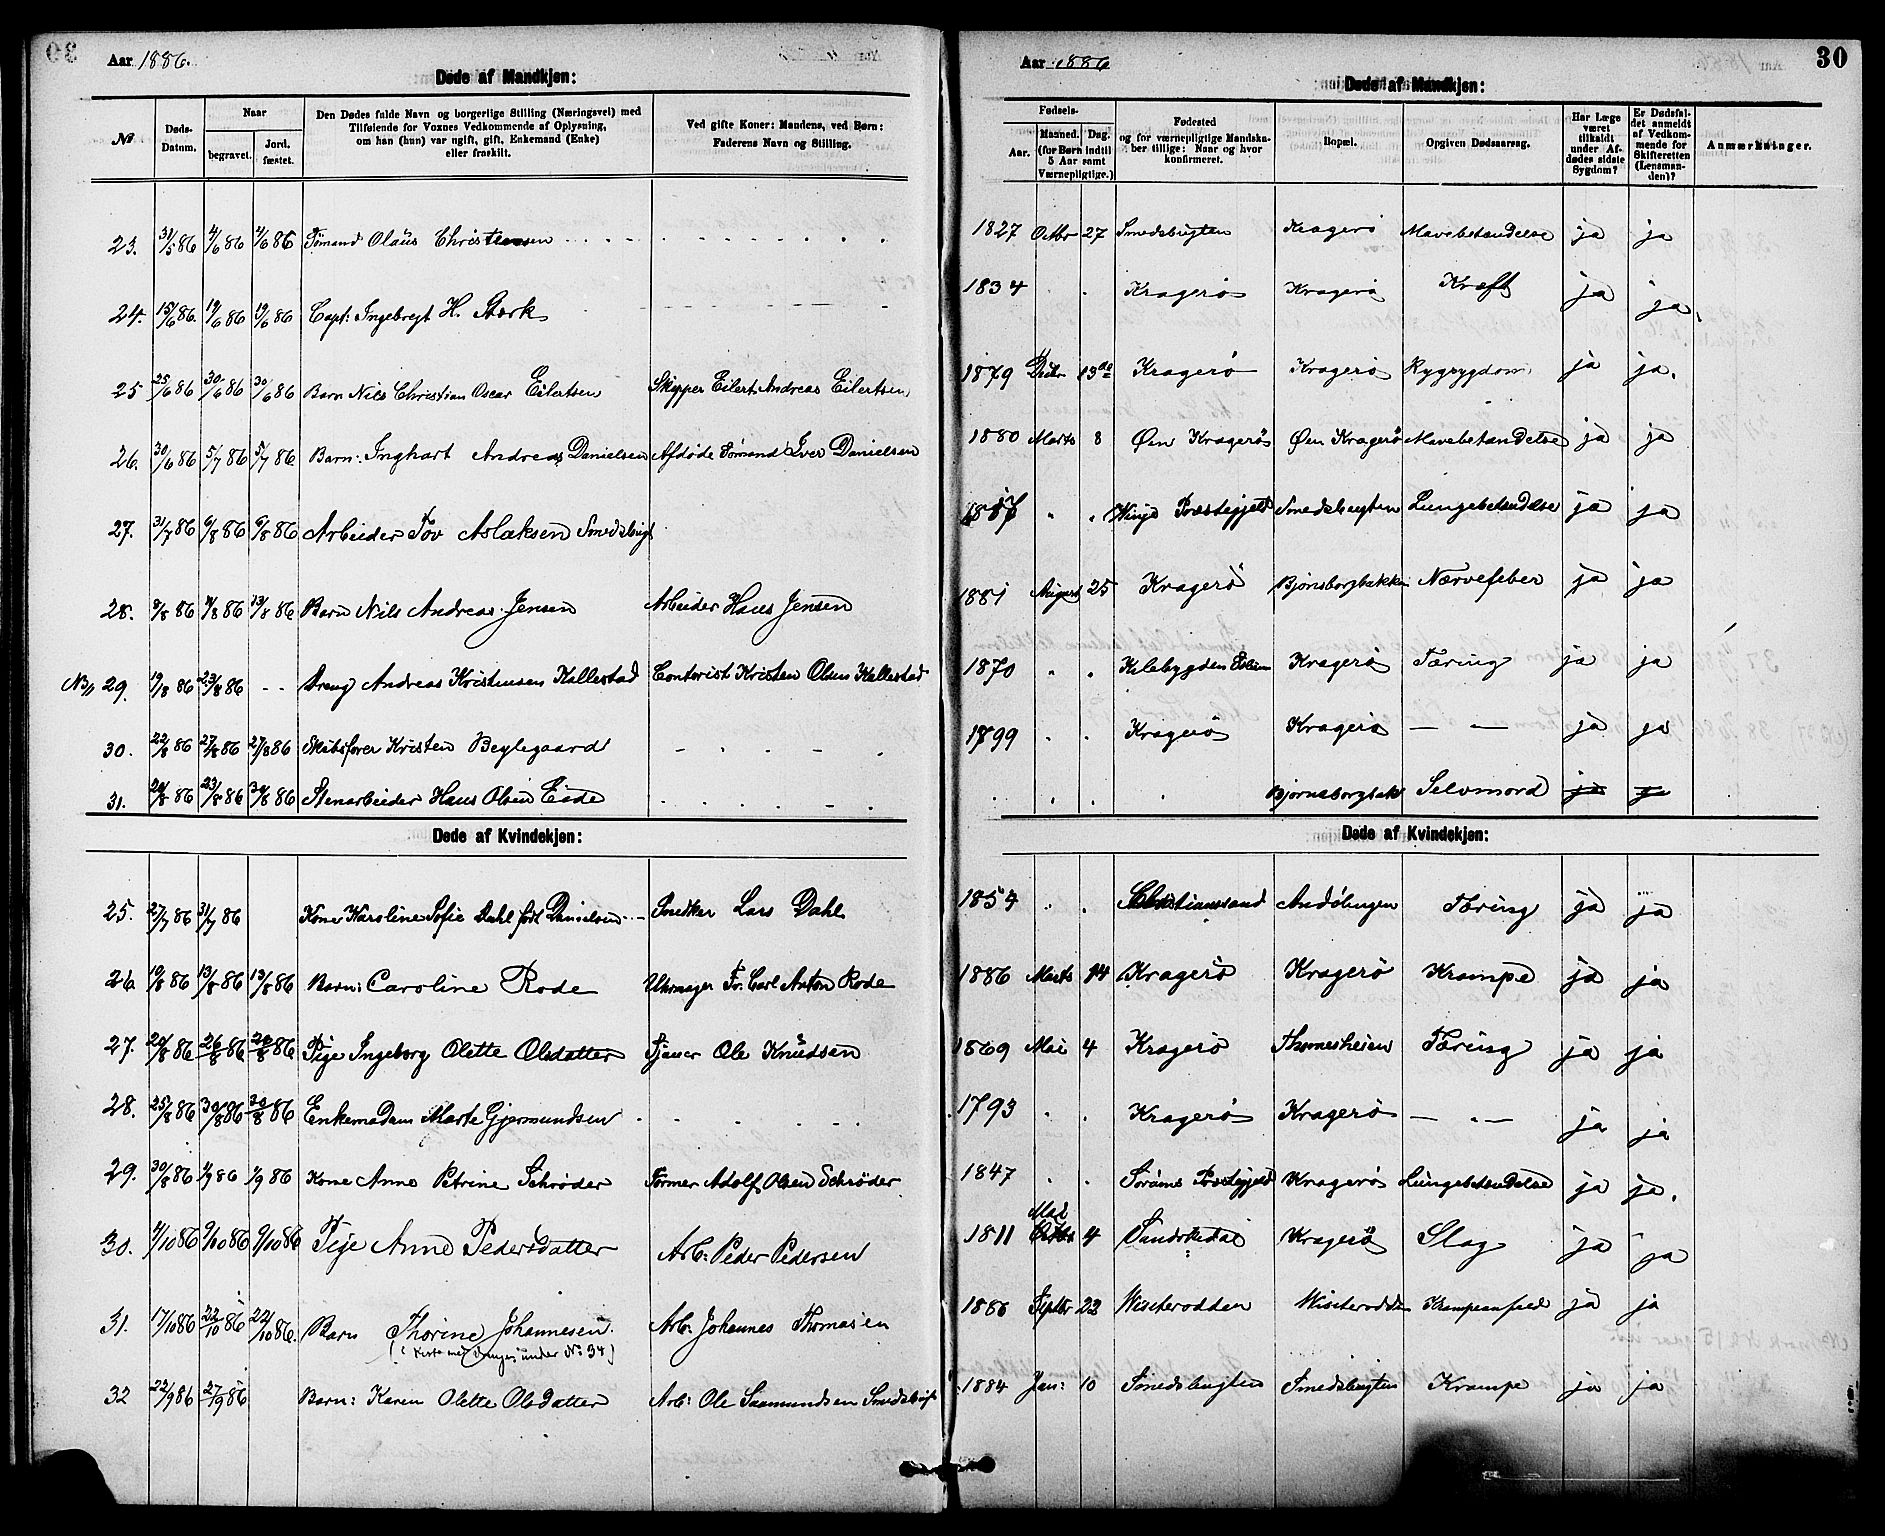 Aar 1886.
Døde af Mandkjøn:
№
Døds-Datum.
Naar
begravet.
Jord.fæstet.
Den Dødes fulde Navn og borgerlige Stilling (Næringsvei) med
Tilføiende for Voxnes Vedkommende af Oplysning,
om han (hun) var ugift, gift, Enkemand (Enke)
eller fraskilt.
Ved gifte Koner: Mandens, ved Børn:
Faderens Navn og Stilling.
23. 31/5 86 4/6 86 4/6 86 Sømand Olaüs Christensen
24. 15/6 86. 19/6 86 19/6 86 Capt: Ingebregt H. Stork
25 25/6 86 30/6 86 30/6 86 Barn Nils Christian Oscar Eilertsen Skipper Eilert Andreas Eilertsen
26. 30/6 86 5/7 86 5/7 86 Barn: Inghart Andreas Danielsen Afdøde Sømand Iver Danielsen
27. 31/7 86 6/8 86 6/8 86 Arbeider Tov Aslaksen Smedsbugt
28. 8/8 86 11/8 86 13/8 86 Barn Nils Andreas Jensen Arbeider Hans Jensen
NB 29. 19/8 86 23/8 86 - - Dreng Andreas Kristensen Kallestad Contorist Kristen Olsen Kallestad
30. 22/8 86 27/8 86 27/8 86 Skibsfører Kristen Beylegaard
31. 20/8 86 23/8 86 30/8 86 Stenarbeider Hans Olsen Eide
Døde af Kvindekjøn:
25. 27/7 86 31/7 86 Kone Karoline Sofie Dahl født Danielsen Snedker Lars Dahl
26. 10/8 86 13/8 86 13/8 86 Barn: Caroline Rode Uhrmager Fr. Carl Anton Rode
27. 20/8 86 26/8 86 26/8 86 Pige Ingeborg Olette Olsdatter Tjener Ole Knudsen
28. 25/8 86 30/8 86 30/8 86 Enkemadam Marte Gjermundsen
29. 30/8 86 1/9 86 1/9 86 Kone Anne Petrine Schrøder Former Adolf Olsen Schrøder
30. 4/10 86 9/10 86 9/10 86 Pige Anne Pedersdatter Arb: Peder Pedersen
31. 17/10 86 22/10 86 22/10 86. Barn Thorine Johannesen. Arb: Johannes Thomasen
under No 34)
32 22/9 86 27/9 86 Barn: Karen Olette Olsdatter Arb: Ole Saamundsen Smedsbugt
Aar 1886
30
Døde af Mandkjøn:
Fødsels-
Aar.
Maaned. Dag.
(for Børn indtil
5 Aar samt
Værnepligtige.)
Fødested
og for værnepligtige Mandska-
ber tillige: Naar og hvor
konfirmeret.
Bopæl.
Opgiven Dødsaarsag.
Har Læge
været
tilkaldt
under Af-
dødes sidste
Sygdom?
Er Dødsfal-
det anmeldt
af Vedkom-
mende for
Skifteretten
(Lensman-
den)?
Anmærkninger.
1827 Octbr 27 Smedsbugten Kragerø Mavebetændelse ja ja
1834 Kragerø Kragerø Kræft ja ja
1879 Decbr 13de Kragerø Kragerø Rygsygdom ja ja.
1880 Marts 8 Øen Kragerø Øen Kragerø Mavebetændelse ja ja
1817 Winje Præstegjeld Smedsbugten Lungebetændelse ja ja
1881 August 25 Kragerø Bjørnsborgbakken Nærvefeber ja ja
1870 Kilebygden Kragerø Tæring ja ja
1799 Kragerø Kragerø — — ja ja
Bjørnsborgbak Selvmord ja ja
Døde af Kvindekjøn:
1854 Christianssand Andølingen Tæring ja ja
1886 Marts 14 Kragerø Kragerø Krampe ja ja
1869 Mai 4 Kragerø Thomesheien Tæring ja ja
1793 Kragerø Kragerø — " — ja ja
1847 Sørums Præstegjeld Kragerø Lungebetændelse ja ja.
1811 Mai 4 Sandøkedal Kragerø Slag ja ja
1886 Septbr 22 Wisterodden Wisterodden Krampeanfald ja ja
1884 Jan: 10 Smedsbugten Smedsbugten Krampe ja ja